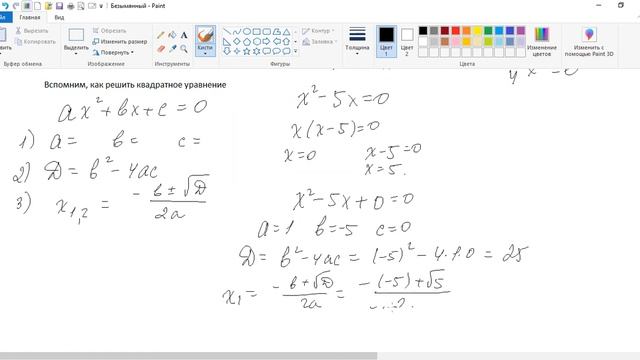 Безымянный - Paint
Главная
Вид
Вырезать
Копировать
Буфер обмена
Выделить
Обрезать
Изменить размер
Повернуть
Изображение
Инструменты
Кисти
Контур
Заливка
Фигуры
Толщина
Цвет 1
Цвет 2
Цвета
Изменение цветов
Изменить с помощью Paint 3D
Вспомним, как решить квадратное уравнение
ax² + bx + c = 0
1) a = b = c =
2) D = b² - 4ac
3) x₁,₂ = (-b ± √D) / 2a
x² - 5x = 0
x(x-5) = 0
x = 0 x - 5 = 0
x = 5.
x² - 5x + 0 = 0
a = 1 b = -5 c = 0
D = b² - 4ac = (-5)² - 4·1·0 = 25
x₁ = (-b + √D) / 2a = -(-5) + √5